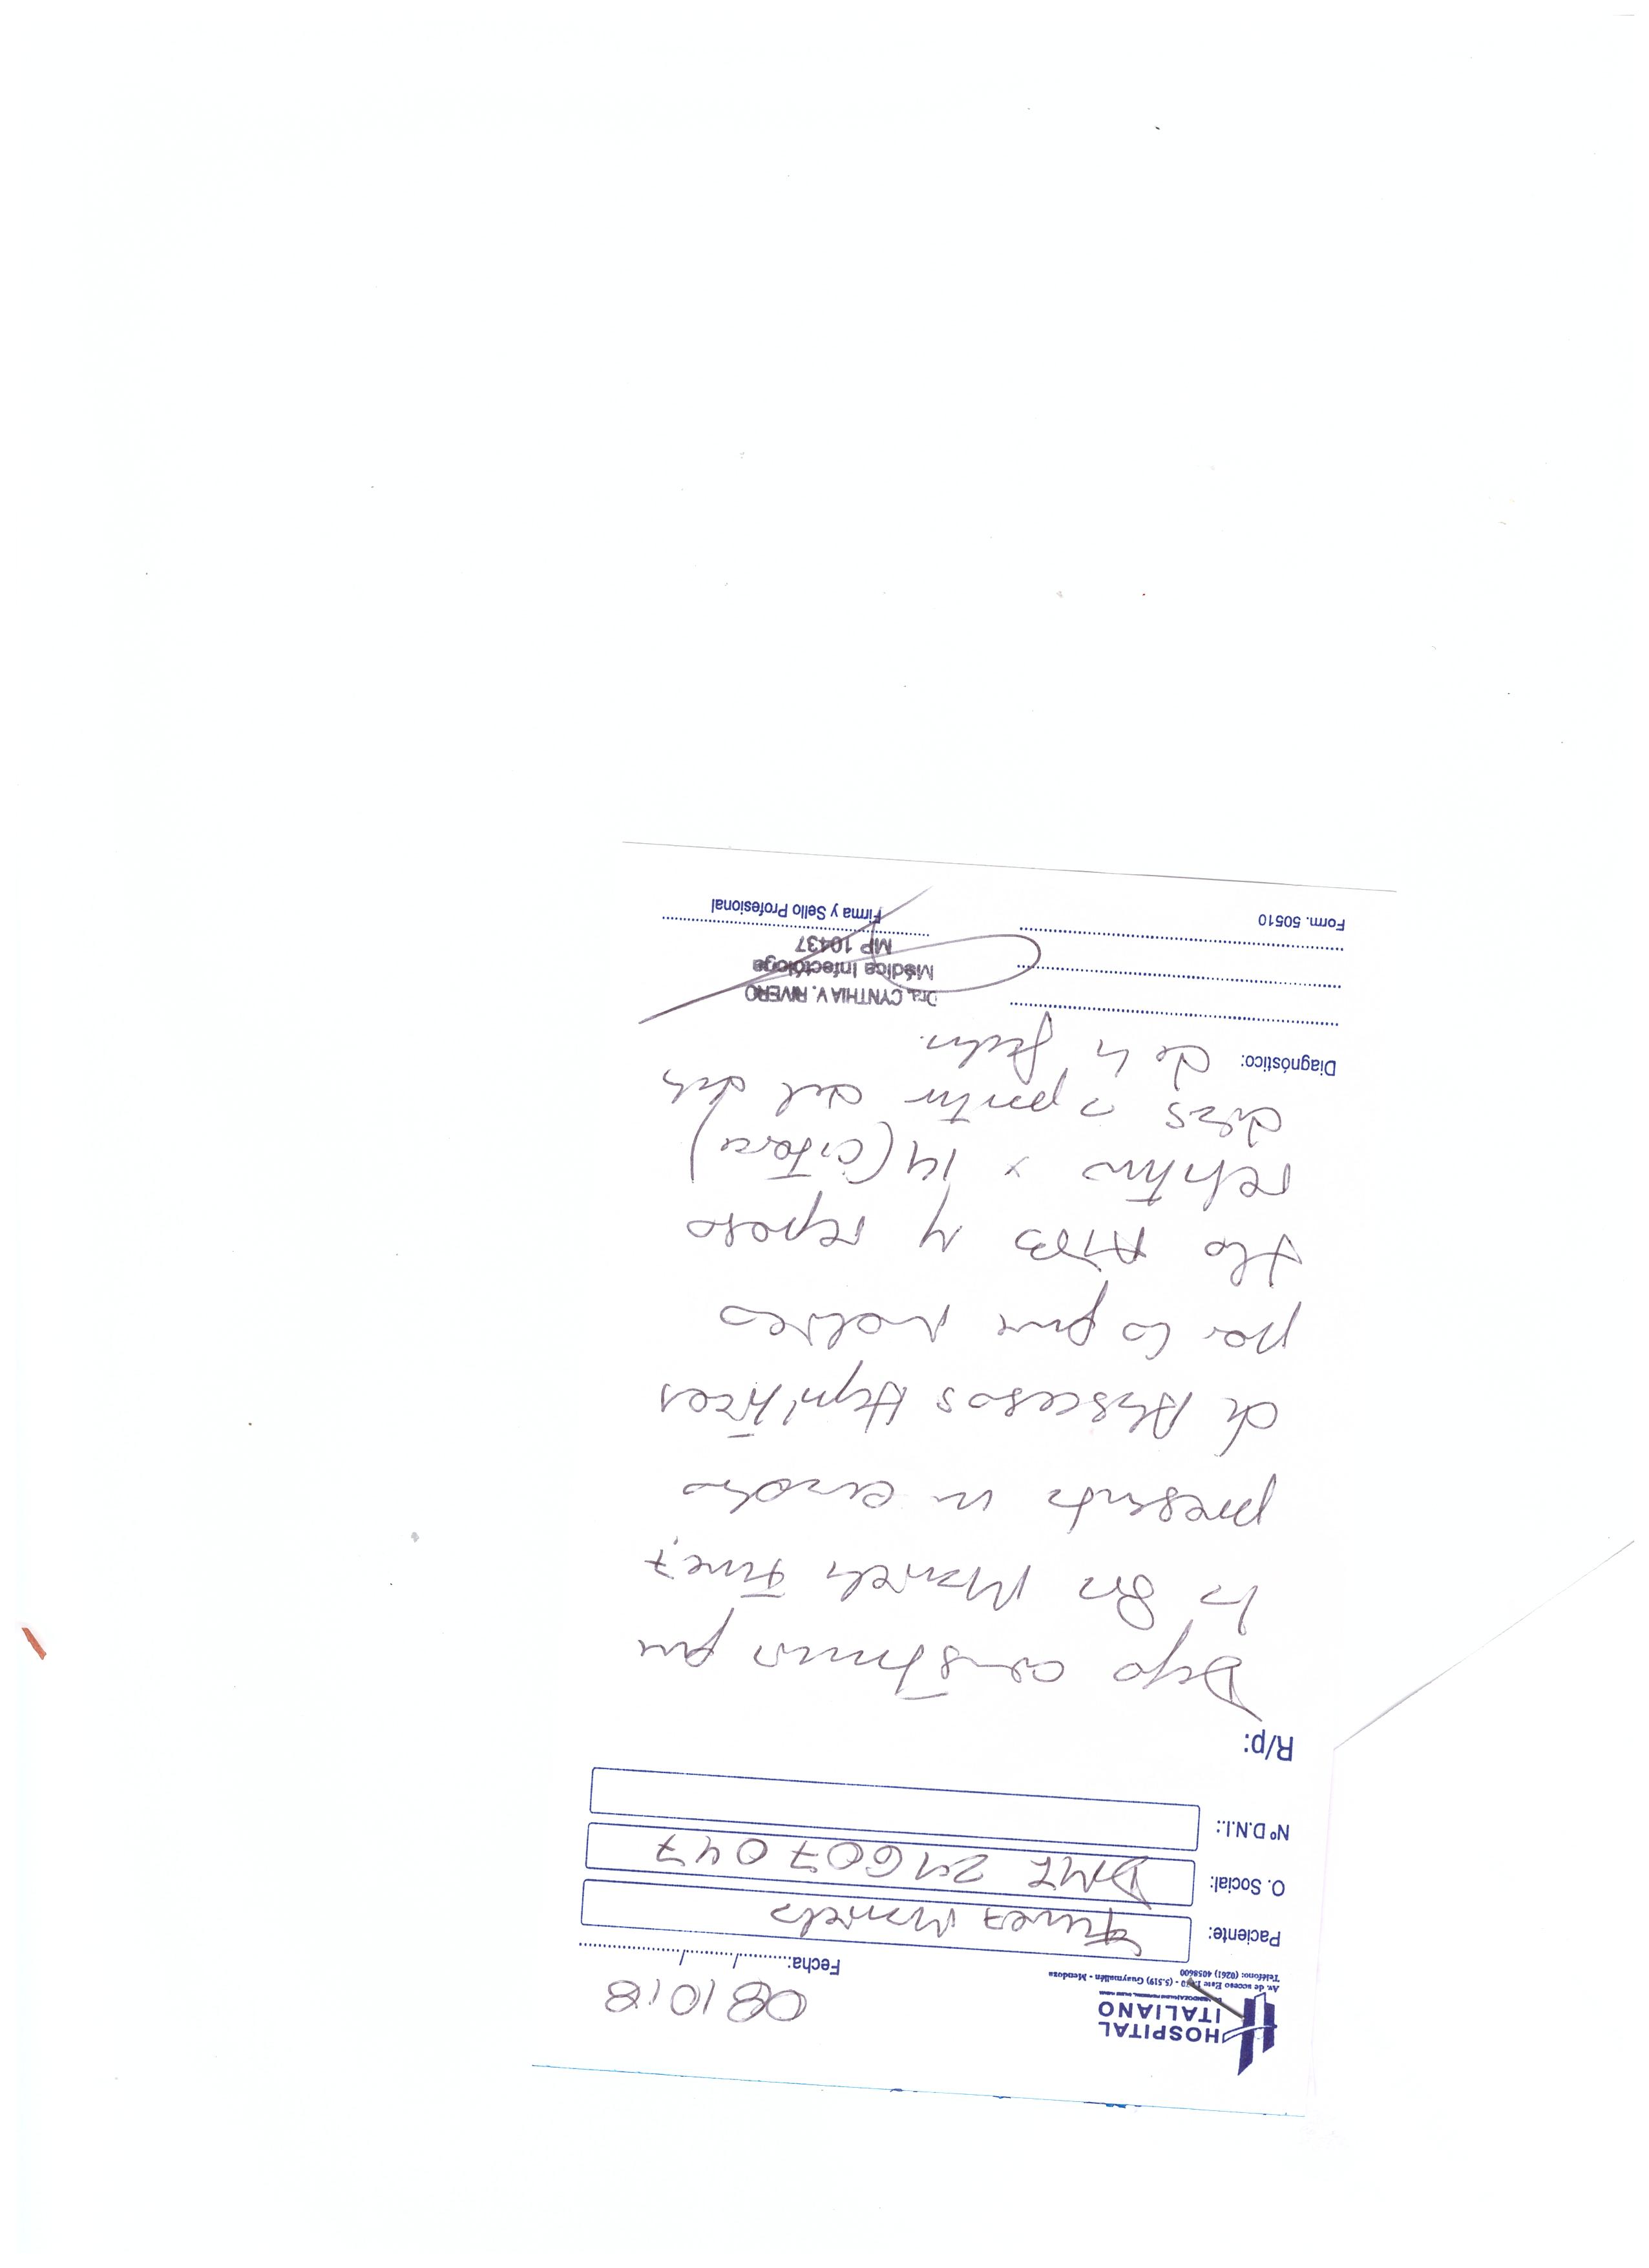 HOSPITAL
ITALIANO
Av. de acceso Este - (5.519) Guaymallén - Mendoza
Teléfono: (0261) 4058600
081018
Fecha:........../........../....................
Paciente: Funez Marcela
O. Social: 24607047
Nº D.N.I.:
R/p:
Dejo constancia que
la Sra Marcela Funez
presenta un cuadro
de Abscesos Hepáticos
por lo que
tto ATB y reposo
x 14 (catorce)
días a partir del
de la fecha.
Diagnóstico:
Dra. CYNTHIA V. RIVERO
Médica Infectóloga
MP 10437
Form. 50510
Firma y Sello Profesional